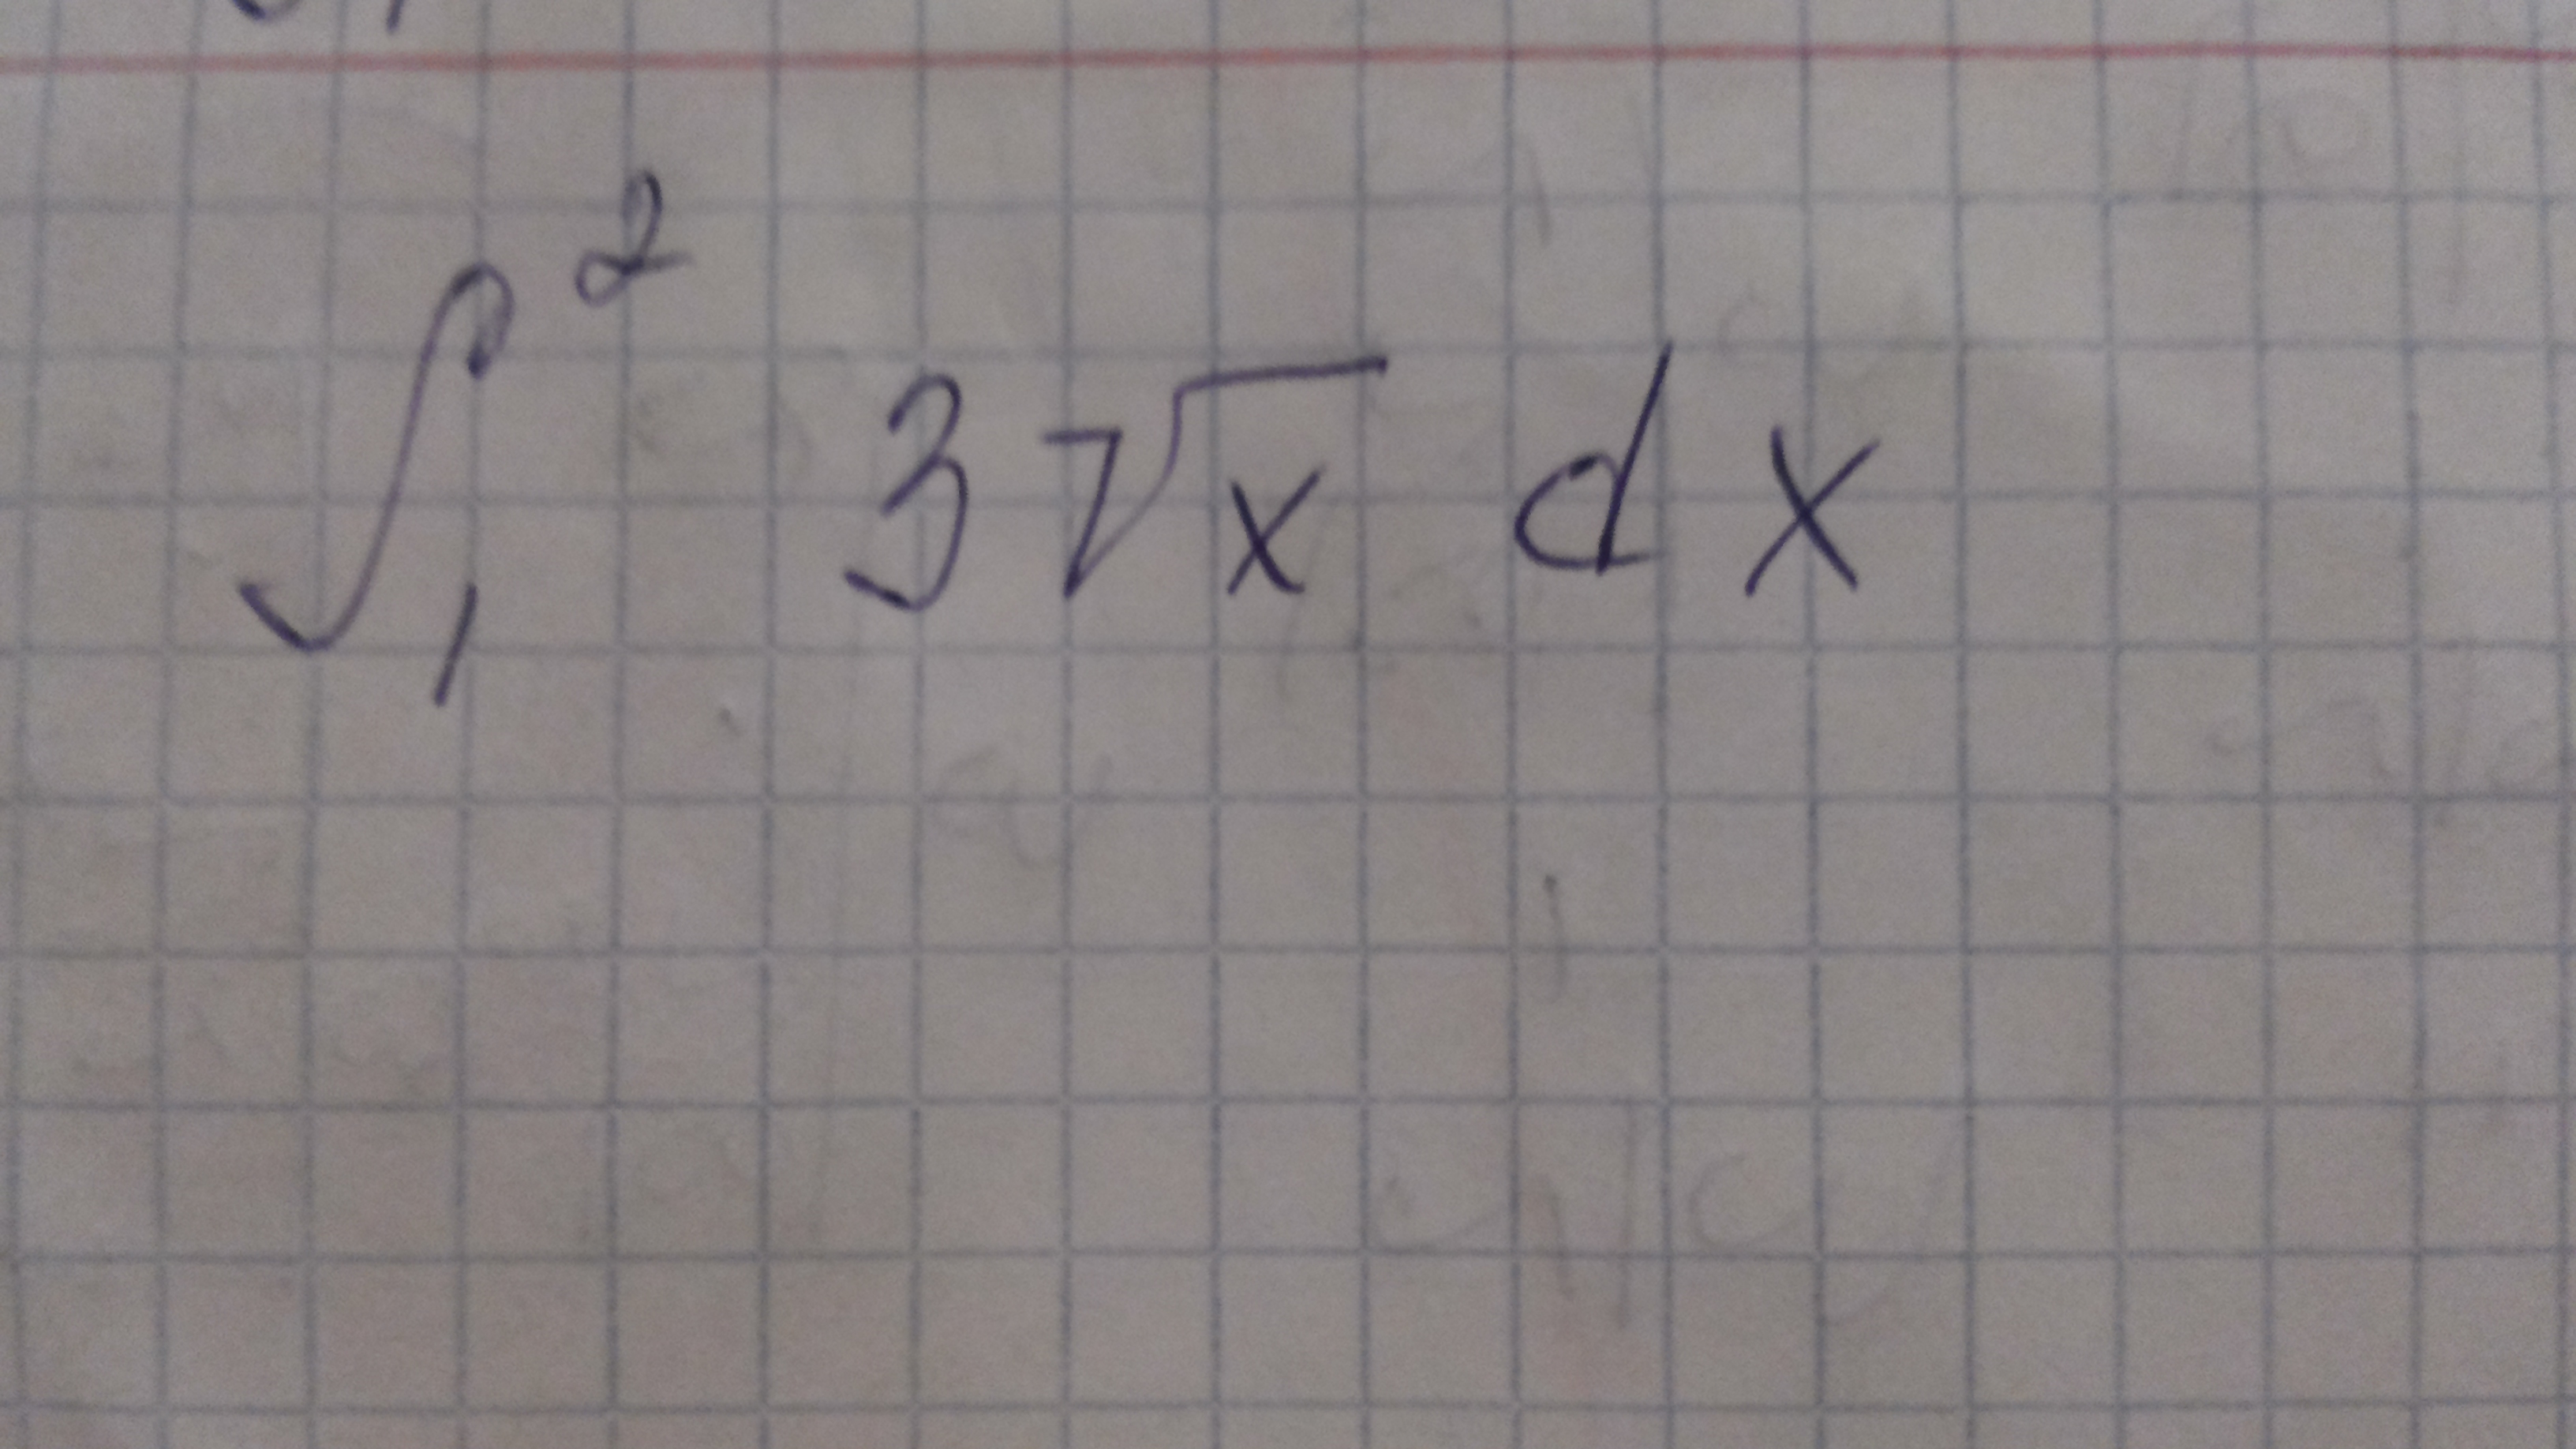 ∫₁² 3√x dx